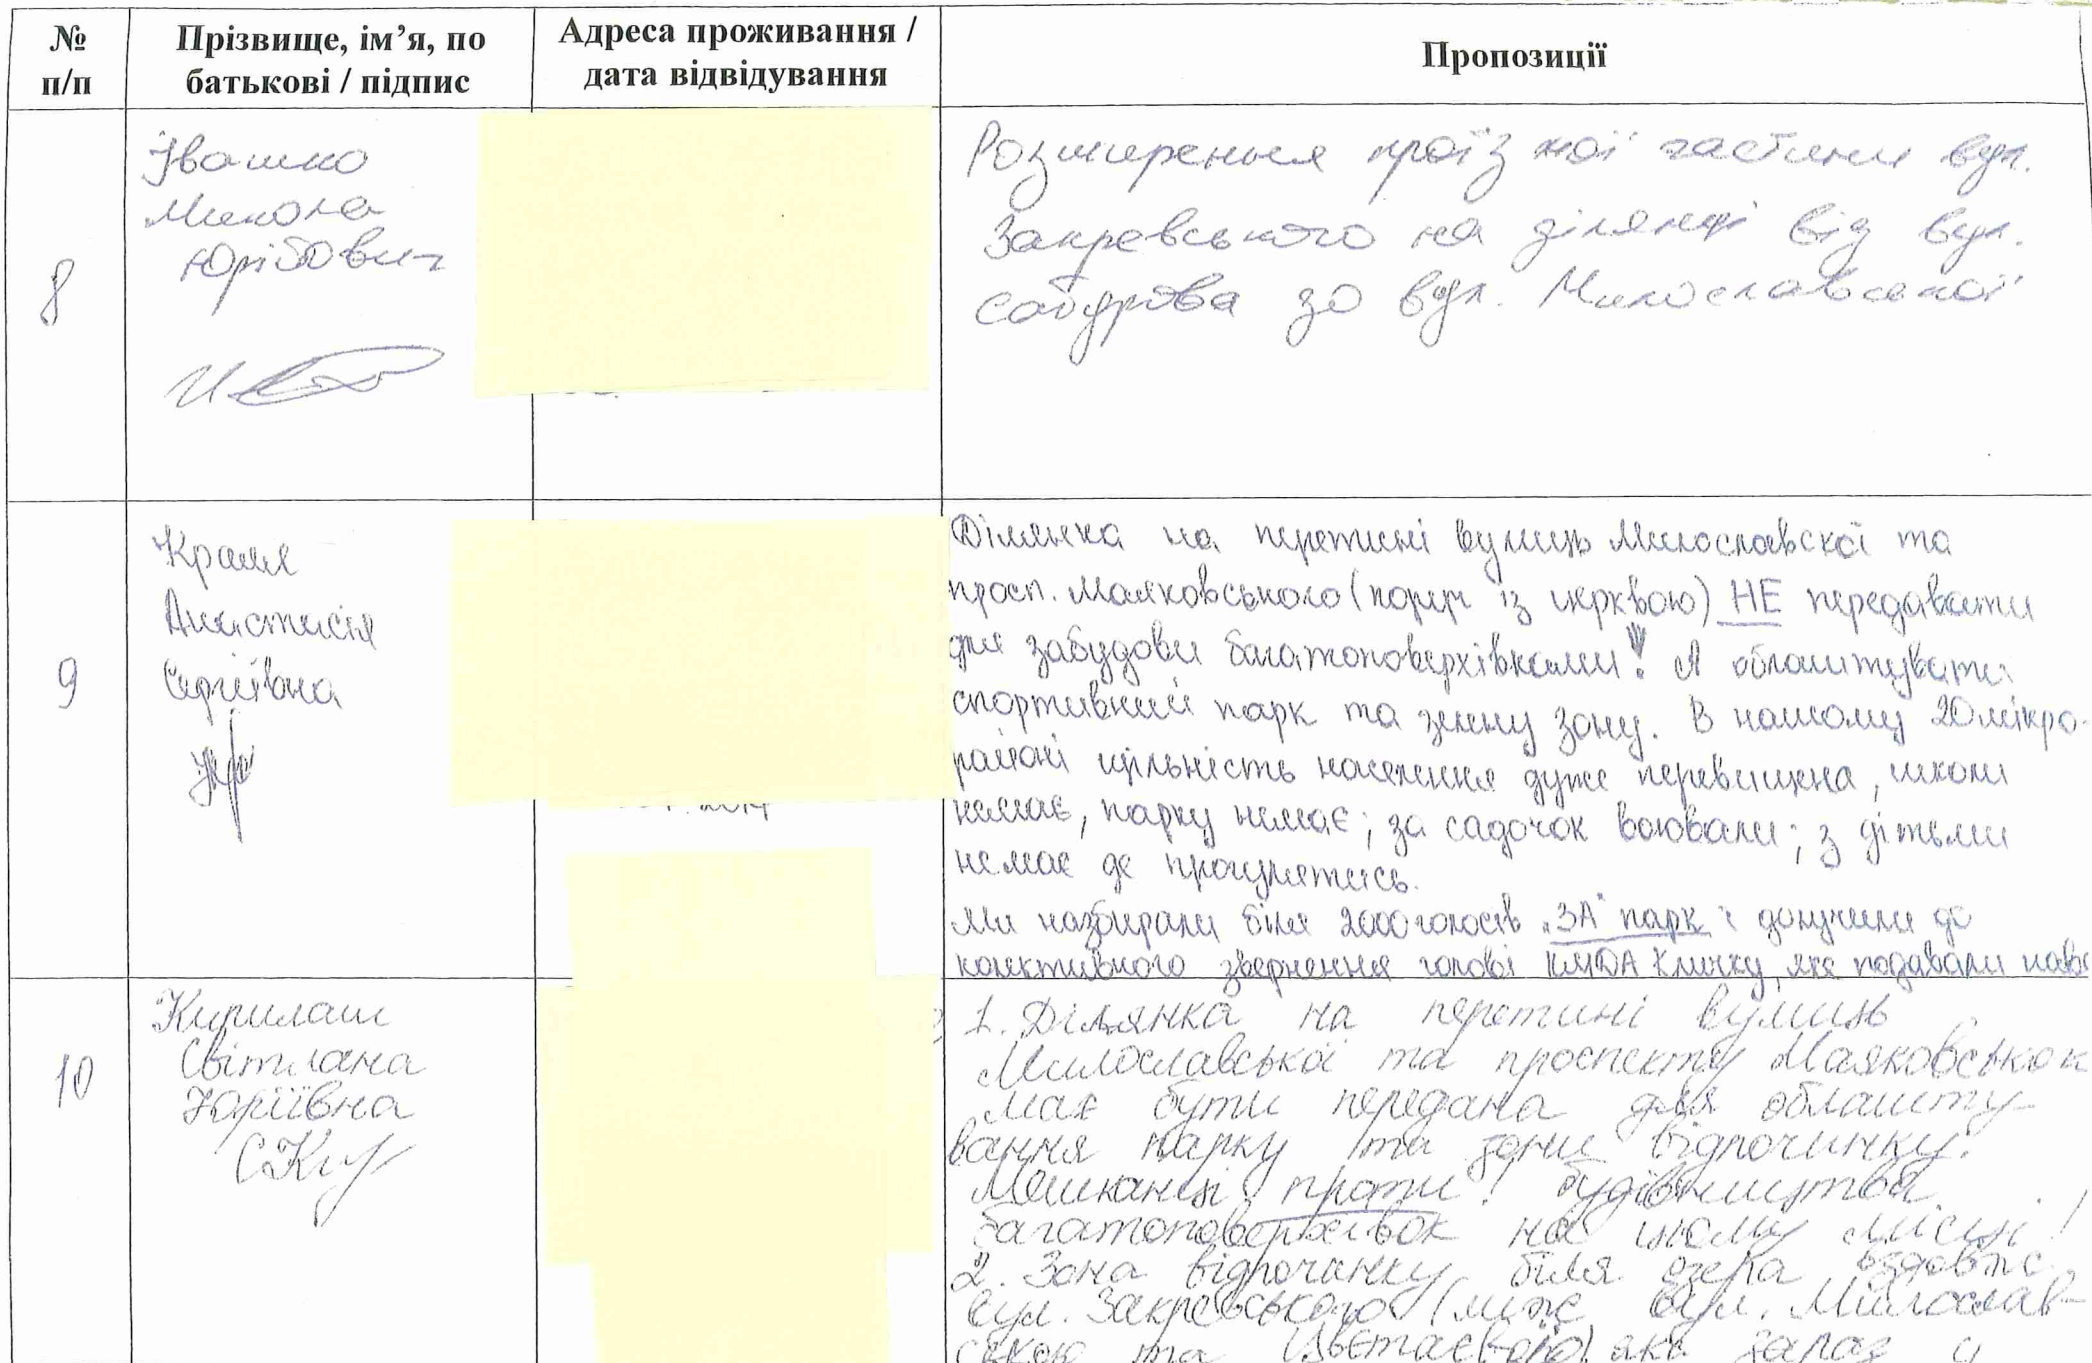 № п/п
Прізвище, ім’я, по батькові / підпис
Адреса проживання / дата відвідування
Пропозиції
8
Івашко
Микола
Юрійович
Розширення проїзної частини вул.
Закревського на ділянці від вул.
Сабурова до вул. Милославської
9
Краля
Анастасія
Сергіївна
Ділянка на перетині вулиць Милославскої та
просп. Маяковського (поруч із церквою) НЕ передавати
для забудови багатоповерхівками! А облаштувати
спортивний парк та зелену зону. В нашому 20 мікро-
районі щільність населення дуже перевищена, школи
немає, парку немає; за садочок воювали; з дітьми
немає де прогулятись.
Ми назбирали біля 2000 голосів "ЗА" парк і долучили до
колективного звернення голові КМДА Кличку, яке подавали
10
Кирилаш
Світлана
Юріївна
1. Ділянка на перетині вулиць
Милославської та проспекту Маяковського
має бути передана для облашту-
вання парку та зони відпочинку.
Мешканці проти! будівництва
багатоповерхівок на цьому місці!
2. Зона відпочинку біля озера вздовж
вул. Закревського (між вул. Милослав-
ською та Цвєтаєвої) яка зараз